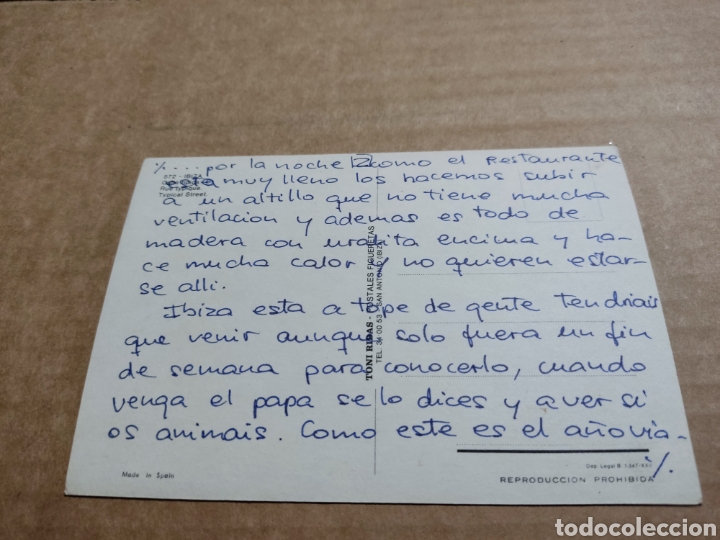 %.... por la noche y como el Restaurante
572 - IBIZA
esta muy lleno los hacemos subir
Rue typique
Typical Street.
a un altillo que no tiene mucha
ventilacion y ademas es todo de
madera con uralita encima y ha-
ce mucha calor y no quieren estar-
se alli.
Ibiza esta a tope de gente tendriais
que venir aunque solo fuera un fin
de semana para conocerlo, cuando
venga el papa se lo dices y a ver si
os animais. Como este es el año via-
%.
TONI RIBAS - POSTALES FIGUERETAS
TEL. 30 00 53 - SAN ANTONIO IBIZA
Made in Spain
Dep. Legal B.
REPRODUCCION PROHIBIDA
todocoleccion